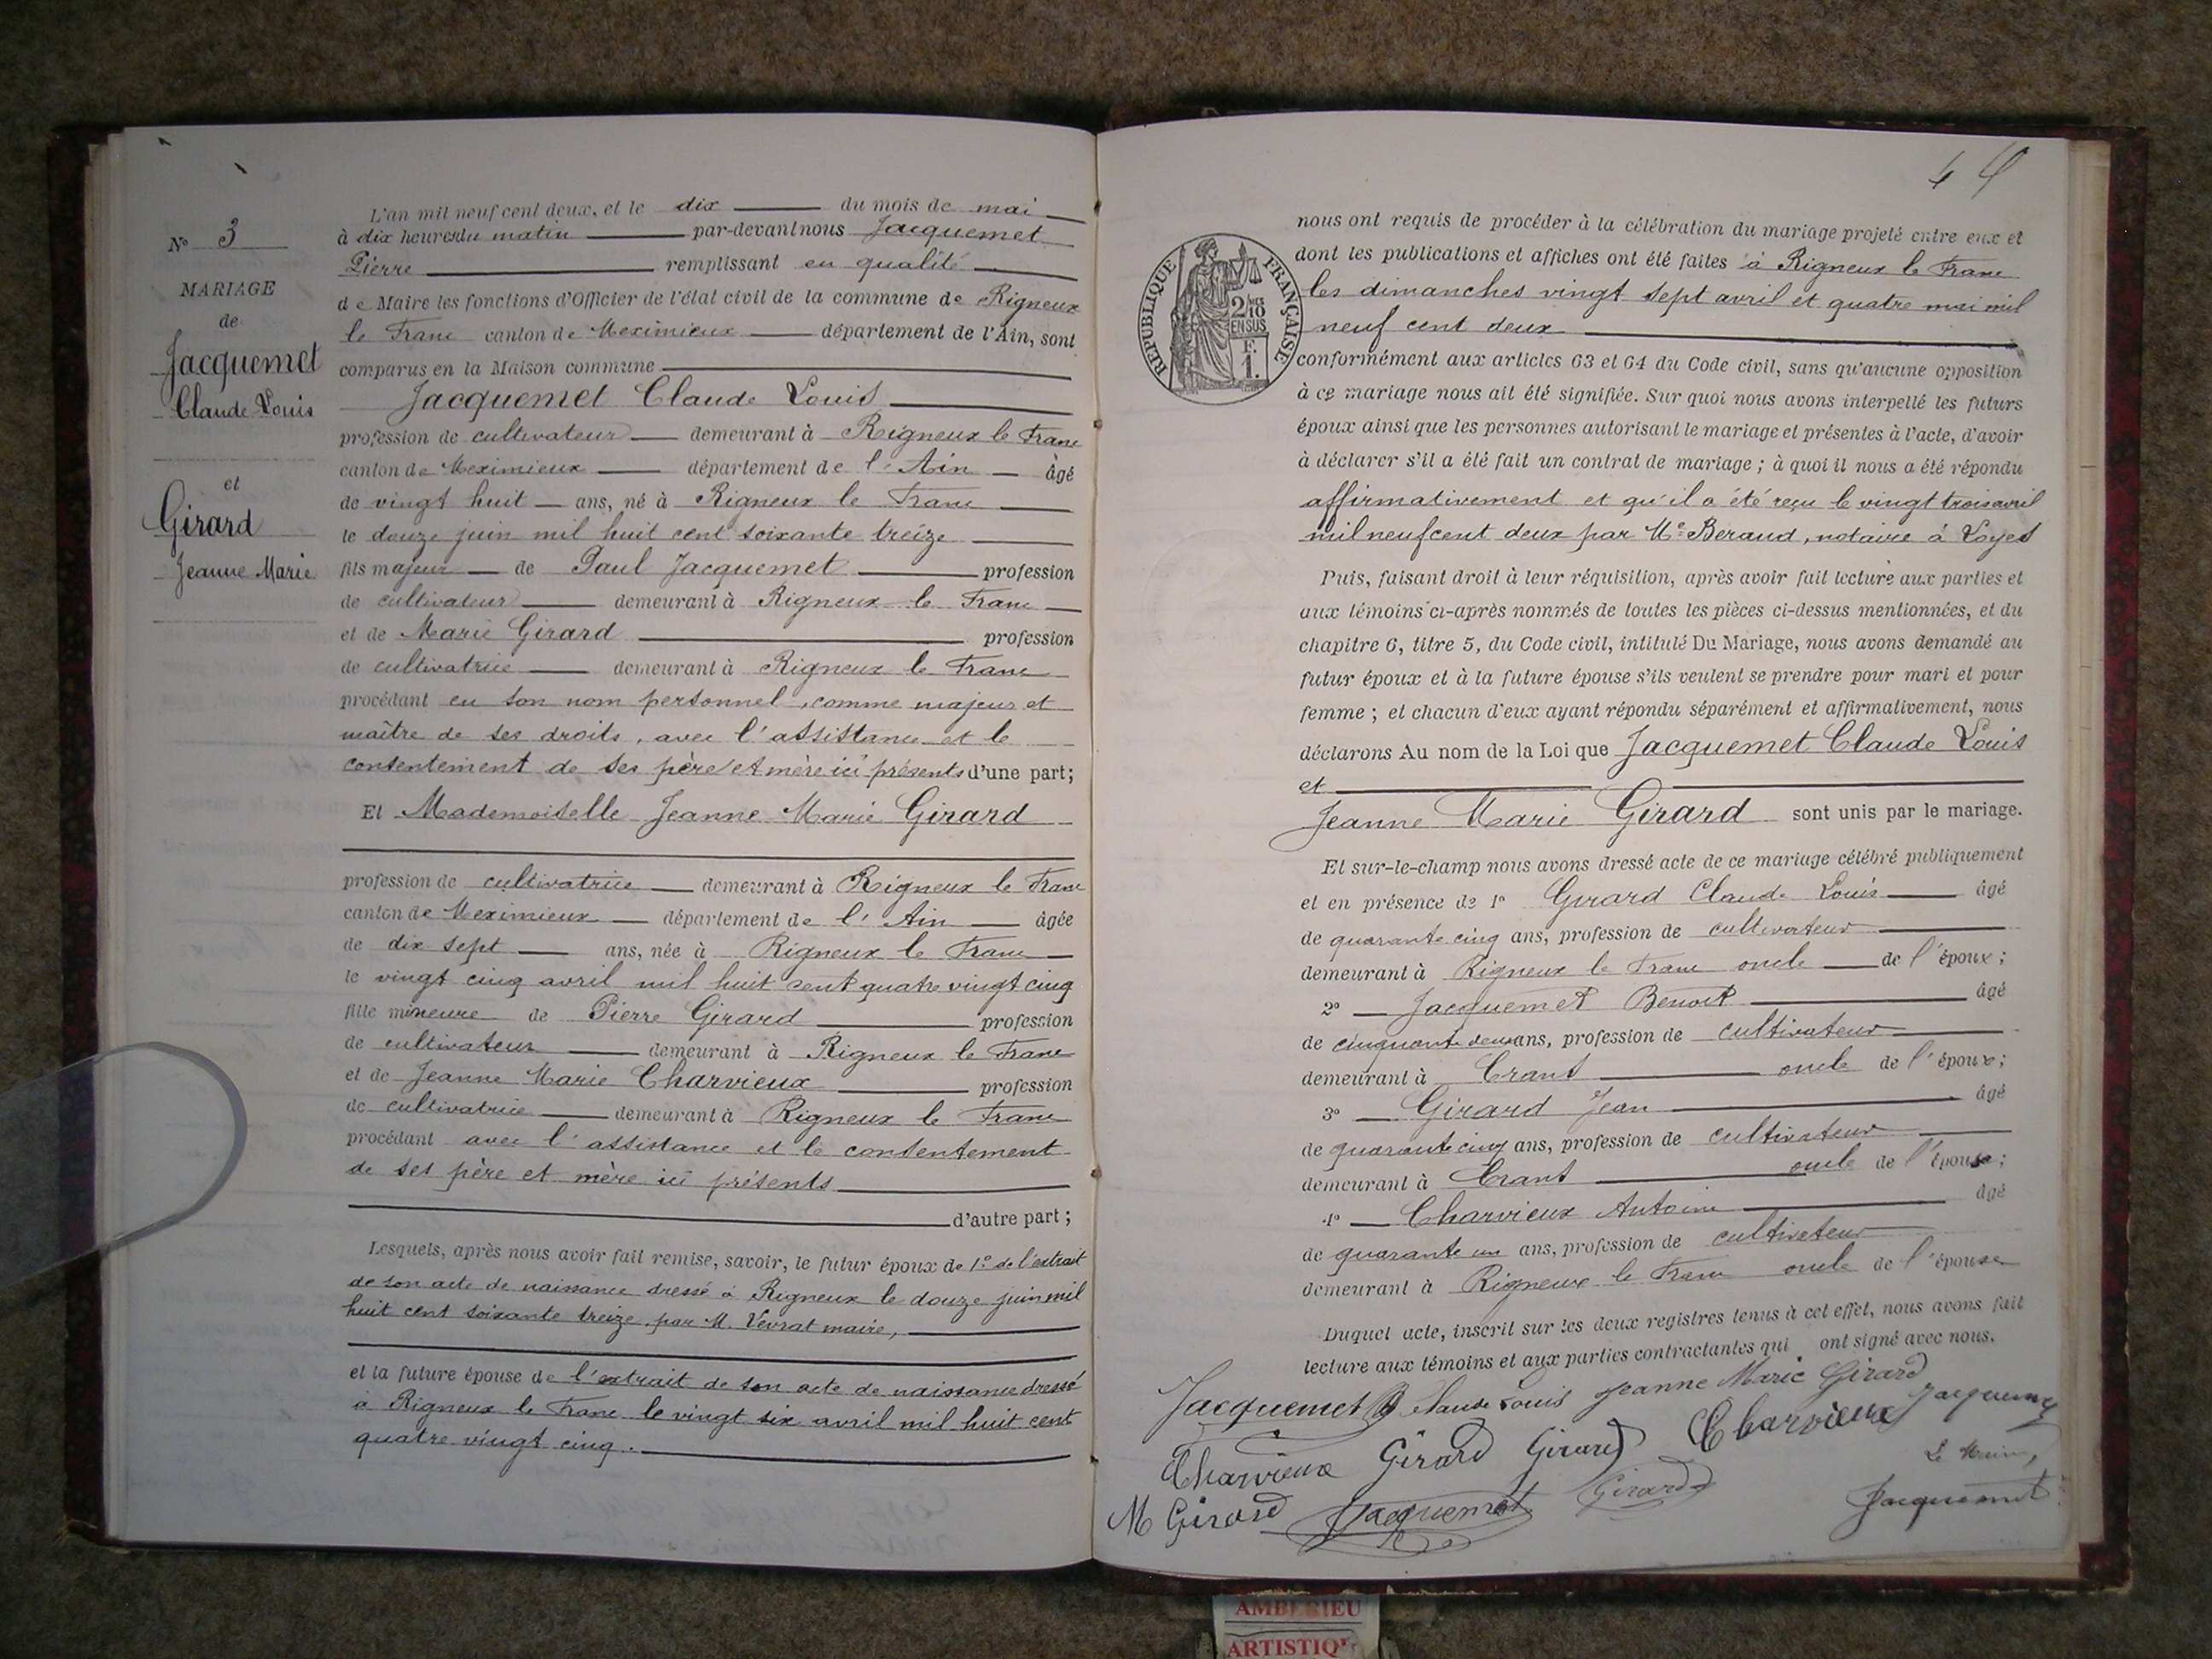 N° 3
MARIAGE
de
Jacquemet
Claude Louis
et
Girard
Jeanne Marie
L'an mil neuf cent deux, et le dix du mois de mai
à dix heures du matin par-devant nous Jacquemet
Pierre remplissant en qualité
de Maire les fonctions d'Officier de l'état civil de la commune de Rigneux
le Franc canton de Meximieux département de l'Ain, sont
comparus en la Maison commune
Jacquemet Claude Louis
profession de cultivateur demeurant à Rigneux le Franc
canton de Meximieux département de l'Ain âgé
de vingt huit ans, né à Rigneux le Franc
le douze juin mil huit cent soixante treize
fils majeur de Paul Jacquemet profession
de cultivateur demeurant à Rigneux le Franc
et de Marie Girard profession
de cultivatrice demeurant à Rigneux le Franc
procédant en son nom personnel, comme majeur et
maître de ses droits, avec l'assistance et le
consentement de ses père et mère ici présents d'une part;
Et Mademoiselle Jeanne Marie Girard
profession de cultivatrice demeurant à Rigneux le Franc
canton de Meximieux département de l'Ain âgée
de dix sept ans, née à Rigneux le Franc
le vingt cinq avril mil huit cent quatre vingt cinq
fille mineure de Pierre Girard profession
de cultivateur demeurant à Rigneux le Franc
et de Jeanne Marie Charvieux profession
de cultivatrice demeurant à Rigneux le Franc
procédant avec l'assistance et le consentement
de ses père et mère ici présents
d'autre part;
Lesquels, après nous avoir fait remise, savoir, le futur époux de 1° de l'extrait
de son acte de naissance dressé à Rigneux le douze juin mil
huit cent soixante treize, par M. Vevrat maire,
et la future épouse de l'extrait de son acte de naissance dressé
à Rigneux le Franc le vingt six avril mil huit cent
quatre vingt cinq.
4
RÉPUBLIQUE FRANÇAISE
2/10
EN SUS
F.
1.
nous ont requis de procéder à la célébration du mariage projeté entre eux et
dont les publications et affiches ont été faites à Rigneux le Franc
les dimanches vingt sept avril et quatre mai mil
neuf cent deux
conformément aux articles 63 et 64 du Code civil, sans qu'aucune opposition
à ce mariage nous ait été signifiée. Sur quoi nous avons interpellé les futurs
époux ainsi que les personnes autorisant le mariage et présentes à l'acte, d'avoir
à déclarer s'il a été fait un contrat de mariage; à quoi il nous a été répondu
affirmativement et qu'il a été reçu le vingt trois avril
mil neuf cent deux par Me Beraud, notaire à Loyes
Puis, faisant droit à leur réquisition, après avoir fait lecture aux parties et
aux témoins ci-après nommés de toutes les pièces ci-dessus mentionnées, et du
chapitre 6, titre 5, du Code civil, intitulé Du Mariage, nous avons demandé au
futur époux et à la future épouse s'ils veulent se prendre pour mari et pour
femme; et chacun d'eux ayant répondu séparément et affirmativement, nous
déclarons Au nom de la Loi que Jacquemet Claude Louis
et
Jeanne Marie Girard sont unis par le mariage.
Et sur-le-champ nous avons dressé acte de ce mariage célébré publiquement
et en présence de 1° Girard Claude Louis âgé
de quarante cinq ans, profession de cultivateur
demeurant à Rigneux le Franc oncle de l'époux;
2° Jacquemet Benoit âgé
de cinquante deux ans, profession de cultivateur
demeurant à Crans oncle de l'époux;
3° Girard Jean âgé
de quarante cinq ans, profession de cultivateur
demeurant à Crans oncle de l'épouse;
4° Charvieux Antoine âgé
de quarante un ans, profession de cultivateur
demeurant à Rigneux le Franc oncle de l'épouse
Duquel acte, inscrit sur les deux registres tenus à cet effet, nous avons fait
lecture aux témoins et aux parties contractantes qui ont signé avec nous.
Jacquemet Claude Louis Jeanne Marie Girard
Charvieux Girard Girard Charvieux Jacquemet
Le Maire,
M Girard Jacquemet Girard Jacquemet
AMBERIEU
ARTISTIQ